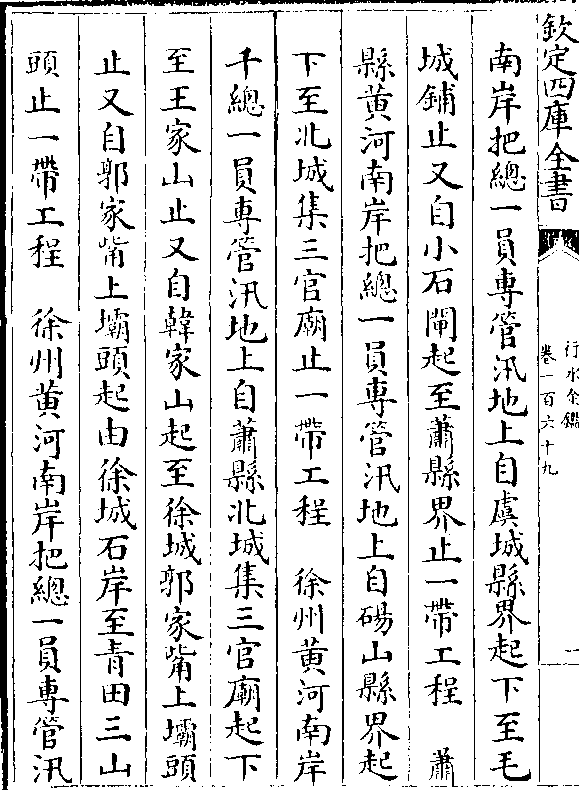 欽定四庫全書
行水金鑑
卷一百六十九
一
南岸把總一員專管汛地上自虞城縣界起下至毛
城鋪止又自小石閘起至蕭縣界止一帶工程　蕭
縣黄河南岸把總一員專管汛地上自碭山縣界起
下至北城集三官廟止一帶工程　徐州黄河南岸
千總一員專管汛地上自蕭縣北城集三官廟起下
至王家山止又自韓家山起至徐城郭家嘴上壩頭
止又自郭家嘴上壩頭起由徐城石岸至青田三山
頭止一帶工程　徐州黄河南岸把總一員專管汛